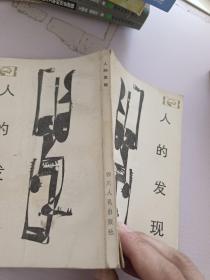 人的发现
人的发现
四川人民出版社
人的发现